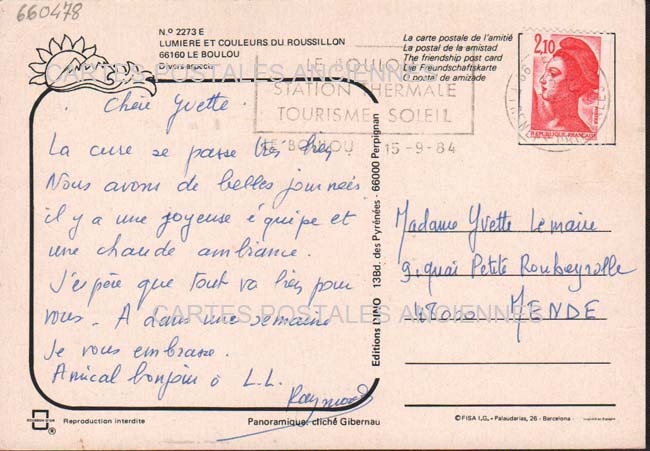 660478
N.º 2273 E
LUMIERE ET COULEURS DU ROUSSILLON
66160 LE BOULOU
Divers aspects
La carte postale de l'amitié
La postal de la amistad
The friendship post card
Die Freundschaftskarte
O postal de amizade
LE BOULOU
STATION THERMALE
TOURISME SOLEIL
LE BOULOU 15-9-84
2,10
REPUBLIQUE FRANÇAISE
CARTES POSTALES ANCIENNES
Chère Yvette.
La cure se passe très bien
Nous avons de belles journées
il y a une joyeuse équipe et
une chaude ambiance.
J'espère que tout va bien pour
vous. A dans une semaine
Je vous embrasse.
Amical bonjour à L.L.
Raymond
Editions DINO 13Bd. des Pyrénées - 66000 Perpignan
Madame Yvette Lemaire
9, quai Petite Roubeyrolle
48000 MENDE
CARTES POSTALES ANCIENNES
Reproduction interdite
Panoramique: cliché Gibernau
© FISA I.G. - Palaudarias, 26 - Barcelona